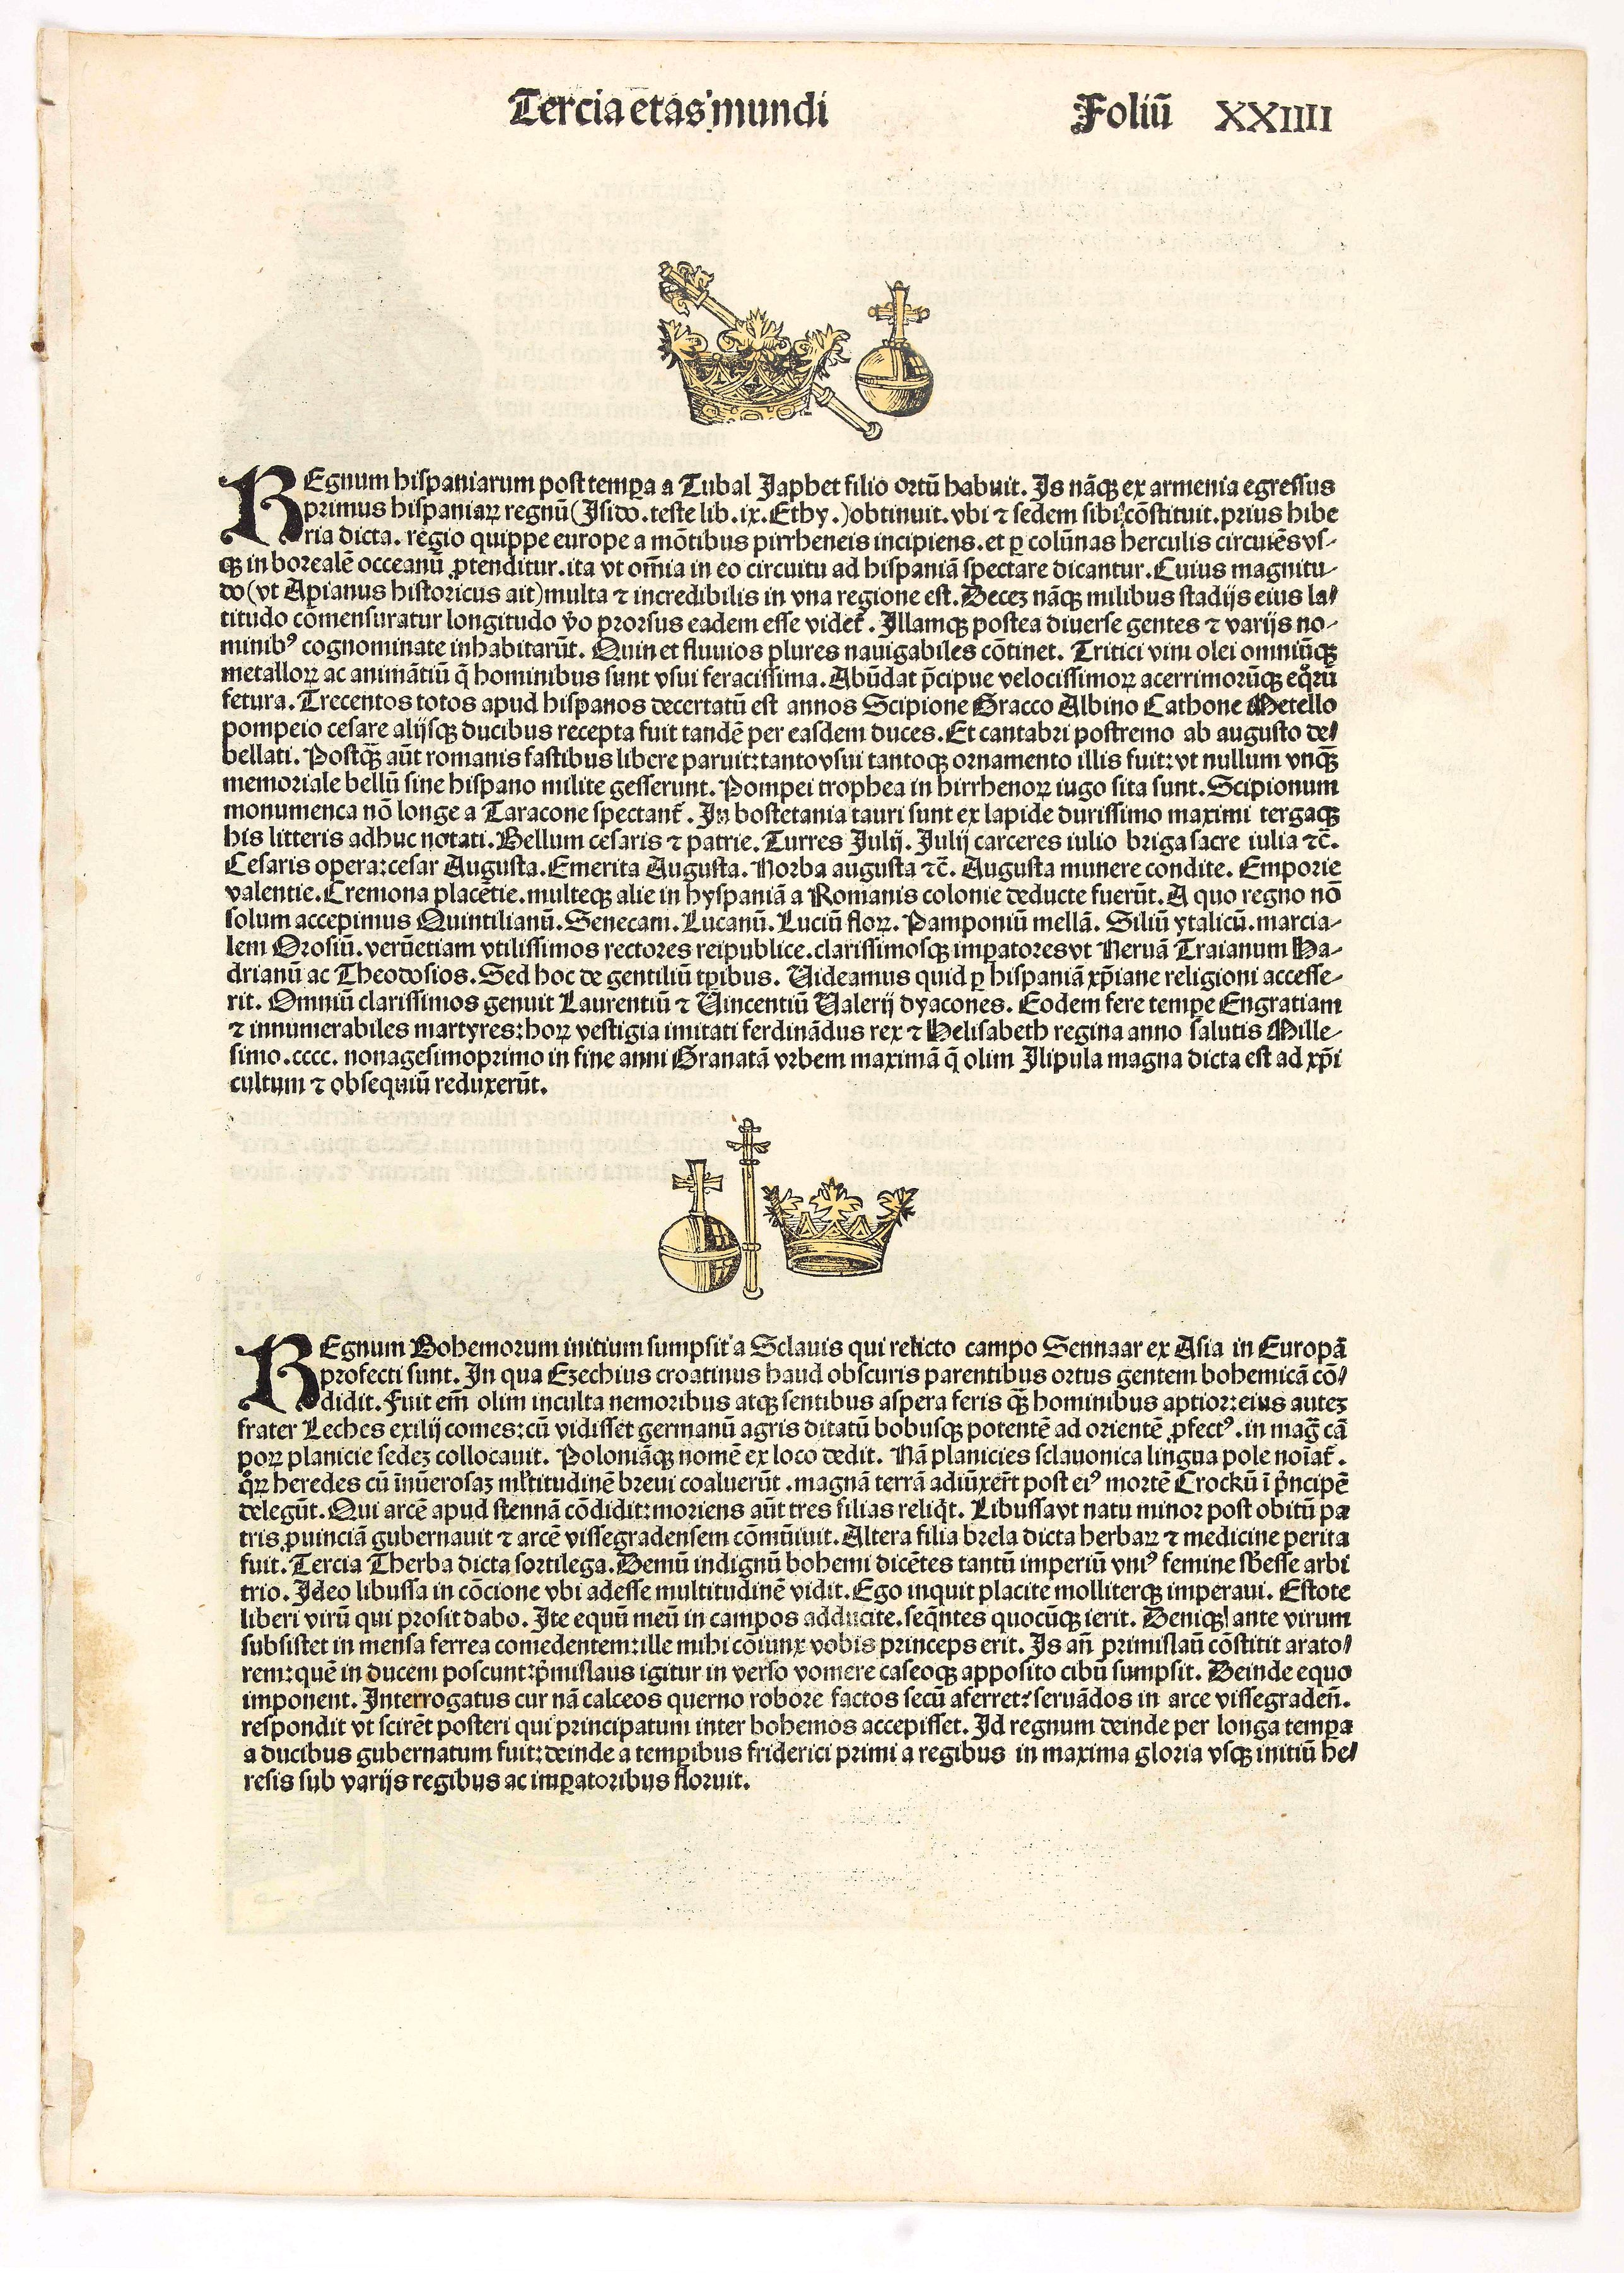 Tercia etas mundi Foliū XXIIII
REgnum hispaniarum post tempꝑa a Tubal Japhet filio ortū habuit. Js nāqꝫ ex armenia egressus
primus hispaniaꝝ regnū (Jsido. teste lib. ix. Ethy.) obtinuit. vbi ⁊ sedem sibi cōstituit. prius hibe
ria dicta. regio quippe europe a mōtibus pirrheneis incipiens. et ꝑ colūnas herculis circuiēs vs-
qꝫ in borealē occeanū ꝓtenditur. ita vt om̄ia in eo circuitu ad hispaniā spectare dicantur. Cuius magnitu-
do (vt Apianus historicus ait) multa ⁊ incredibilis in vna regione est. Decez nāqꝫ milibus stadijs eius la-
titudo cōmensuratur longitudo v̄o prorsus eadem esse videt̄. Jllamqꝫ postea diuerse gentes ⁊ varijs no-
minibꝰ cognominate inhabitarūt. Quin et fluuios plures nauigabiles cōtinet. Tritici vini olei omniūqꝫ
metalloꝝ ac animātiū q̄ hominibus sunt vsui feracissima. Abūdat p̄cipue velocissimoꝝ acerrimorūqꝫ eqͦrū
fetura. Trecentos totos apud hispanos decertatū est annos Scipione Gracco Albino Cathone Metello
pompeio cesare alijsqꝫ ducibus recepta fuit tandē per easdem duces. Et cantabri postremo ab augusto de-
bellati. Postqꝫ̄ aūt romanis fastibus libere paruit: tanto vsui tantoqꝫ ornamento illis fuit: vt nullum vnqꝫ̄
memoriale bellū sine hispano milite gesserunt. Pompei trophea in birrhenoꝝ iugo sita sunt. Scipionum
monumenca nō longe a Taracone spectant̄. Jn bostetania tauri sunt ex lapide durissimo maximi tergaqꝫ
his litteris adhuc notati. Bellum cesaris ⁊ patrie. Turres Julij. Julij carceres iulio briga sacre iulia ⁊c̄.
Cesaris opera: cesar Augusta. Emerita Augusta. Norba augusta ⁊c̄. Augusta munere condite. Emporie
valentie. Cremona placētie. multeqꝫ alie in hyspaniā a Romanis colonie deducte fuerūt. A quo regno nō
solum accepimus Quintilianū. Senecam. Lucanū. Luciū floꝝ. Pamponiū mellā. Siliū ytalicū. marcia-
lem Orosiū. verūetiam vtilissimos rectores reipublice. clarissimosqꝫ imꝑatores vt Neruā Traianum Ha-
drianū ac Theodosios. Sed hoc de gentiliū tꝑibus. Uideamus quid ꝑ hispaniā xp̄iane religioni accesse-
rit. Omniū clarissimos genuit Laurentiū ⁊ Uincentiū Ualerij dyacones. Eodem fere tempꝑe Engratiam
⁊ innumerabiles martyres: hoꝝ vestigia imitati ferdinādus rex ⁊ Helisabeth regina anno salutis Mille-
simo. cccc. nonagesimoprimo in fine anni Granatā vrbem maximā q̄ olim Jlipula magna dicta est ad xp̄i
cultum ⁊ obsequiū reduxerūt.
REgnum Bohemorum initium sumpsit a Sclauis qui relicto campo Sennaar ex Asia in Europā
profecti sunt. Jn qua Ezechius croatinus haud obscuris parentibus ortus gentem bohemicā cō-
didit. Fuit em̄ olim inculta nemoribus atqꝫ sentibus aspera feris qꝫ̄ hominibus aptior: eius autez
frater Leches exilij comes: cū vidisset germanū agris ditatū bobusqꝫ potentē ad orientē ꝓfectꝰ. in maḡ cā
poꝝ planicie sedez collocauit. Poloniāqꝫ nomē ex loco dedit. Nā planicies sclauonica lingua pole noīat̄.
qͦꝝ heredes cū īnūerosaz ml̄titudinē breui coaluerūt. magnā terrā adiūxer̄t post eiꝰ mortē Crockū ī p̄ncipē
delegūt. Qui arcē apud stennā cōdidit: moriens aūt tres filias reliq̄t. Libussa vt natu minor post obitū pa
tris ꝓuinciā gubernauit ⁊ arcē vissegradensem cōmūiuit. Altera filia brela dicta herbaꝝ ⁊ medicine perita
fuit. Tercia Therba dicta sortilega. Demū indignū bohemi dicētes tantū imperiū vniꝰ femine sb̄esse arbi
trio. Jdeo libussa in cōcione vbi adesse multitudinē vidit. Ego inquit placite molliterqꝫ imperaui. Estote
liberi virū qui prosit dabo. Jte equū meū in campos adducite. seq̄ntes quocūqꝫ ierit. Deniqꝫ ante virum
subsistet in mensa ferrea comedentem: ille mihi cōiunx vobis princeps erit. Js an̄ primislaū cōstitit arato-
rem: quē in ducem poscunt: p̄mislaus igitur in verso vomere caseoqꝫ apposito cibū sumpsit. Deinde equo
imponent. Jnterrogatus cur nā calceos querno robore factos secū aferret: seruādos in arce vissegraden̄.
respondit vt scirēt posteri qui principatum inter bohemos accepisset. Jd regnum deinde per longa tempꝑa
a ducibus gubernatum fuit: deinde a tempꝑibus friderici primi a regibus in maxima gloria vsqꝫ initiū he-
resis sub varijs regibus ac imꝑatoribus floruit.